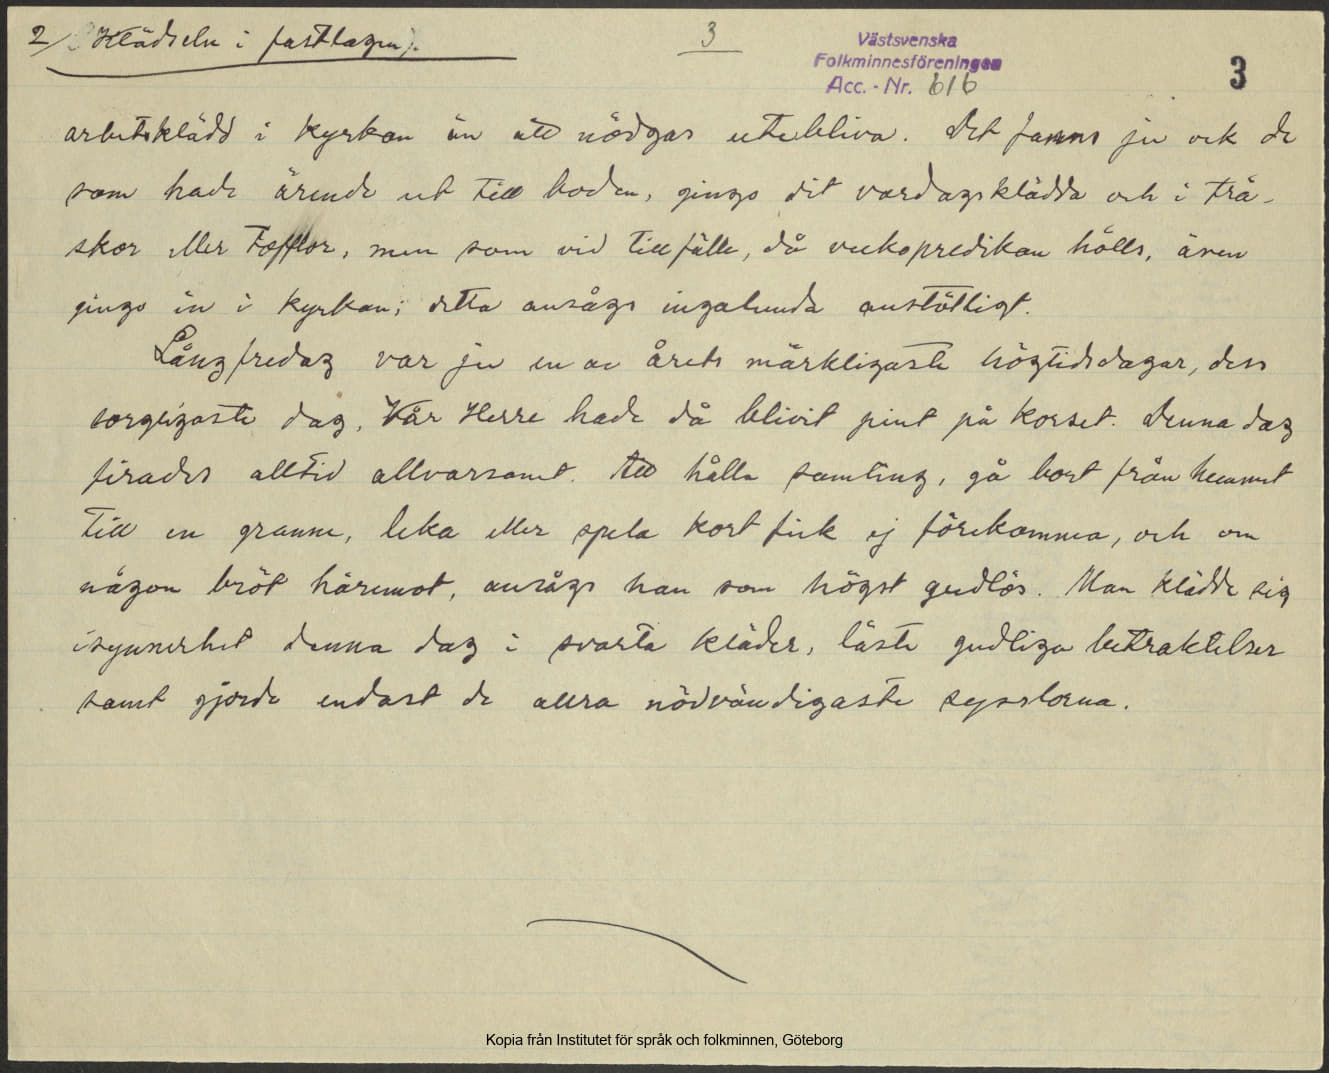 2/ (Klädseln i fastlagen).
3
Västsvenska
Folkminnesföreningen
Acc. - Nr. 616
3
arbetsklädd i kyrkan än att nödgas utebliva. Det fanns ju ock de
som hade ärende ut till boden, gingo dit vardagsklädda och i trä-
skor eller tofflor, men som vid tillfälle, då veckopredikan hölls, även
gingo in i kyrkan; detta ansågs ingalunda anstötligt.
Långfredag var ju en av årets märkligaste högtidsdagar, dess
sorgligaste dag. Vår Herre hade då blivit pint på korset. Denna dag
firades alltid allvarsamt. Att hålla samling, gå bort från hemmet
till en granne, leka eller spela kort fick ej förekomma, och om
någon bröt häremot, ansågs han som högst gudlös. Man klädde sig
isynnerhet denna dag i svarta kläder, läste gudliga betraktelser
samt gjorde endast de allra nödvändigaste sysslorna.
Kopia från Institutet för språk och folkminnen, Göteborg